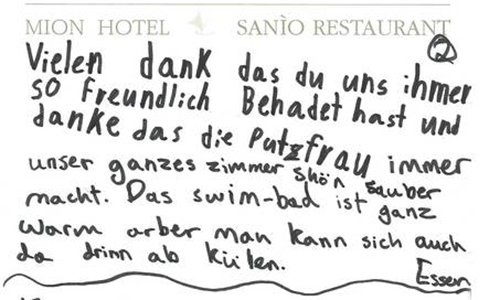 MION HOTEL SANÌO RESTAURANT
2
Vielen dank das du uns ihmer
so freundlich Behadet hast und
danke das die Putzfrau immer
unser ganzes zimmer shön sauber
macht. Das swim-bad ist ganz
warm arber man kann sich auch
da drinn ab külen.
Essen